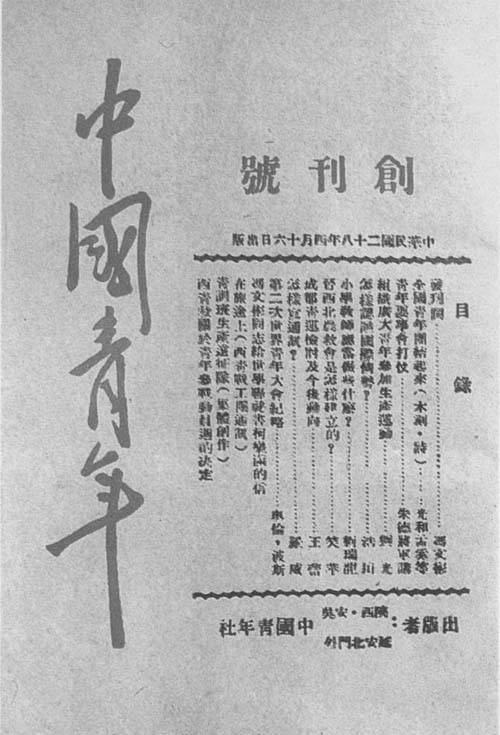 中國青年
創刊號
中華民國二十八年四月十六日出版
目錄
發刊詞……馮文彬
全國青年團結起來(木刻、詩)……
青年要學會打仗……朱德將軍講
組織廣大青年參加生產運動……劉光
怎樣認識國際情勢?……
小學教師應當做些什麼?……劉瑞龍
晉西北農救會是怎樣建立的?……笑萍
成都青運檢討及今後動向……王
怎樣寫通訊?……
第二次世界青年大會紀略……倫·波斯
馮文彬同志給世學聯秘書柯樂滿的信
在旅途上(西青戰工團通訊)
青訓班生產遠征隊(集體創作)
西青救關於青年參戰動員週的決定
出版者:
陝西·安吳
延安北門外
中國青年社